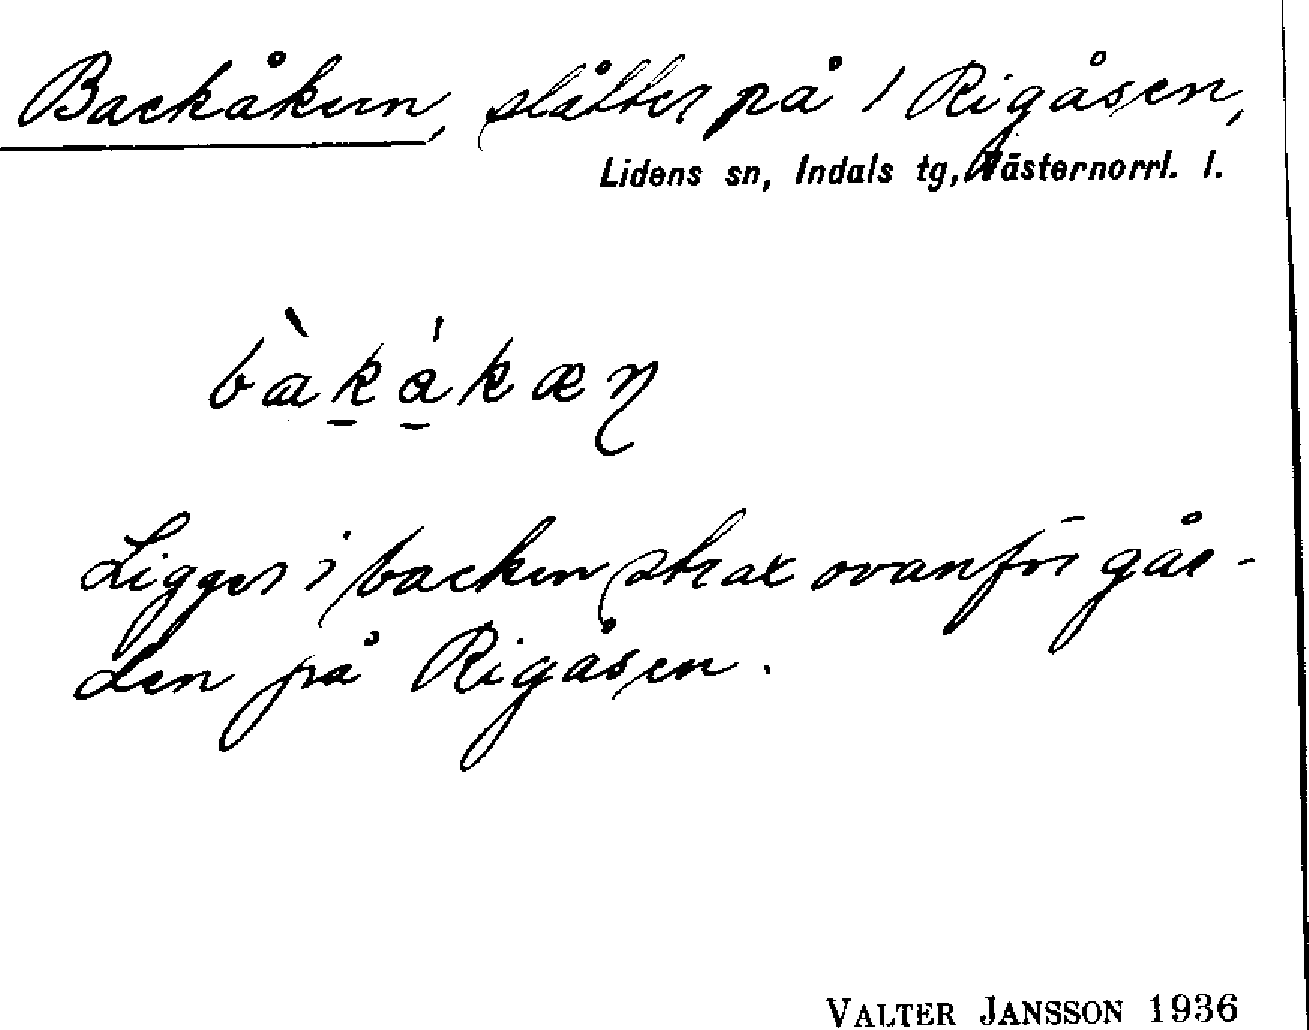 Backåkern, slåtter på 1 Rigåsen,
Lidens sn, Indals tg, Västernorrl. l.
bàk̲á̲kæŋ
Ligger i backen strax ovanför går-
den på Rigåsen.
VALTER JANSSON 1936